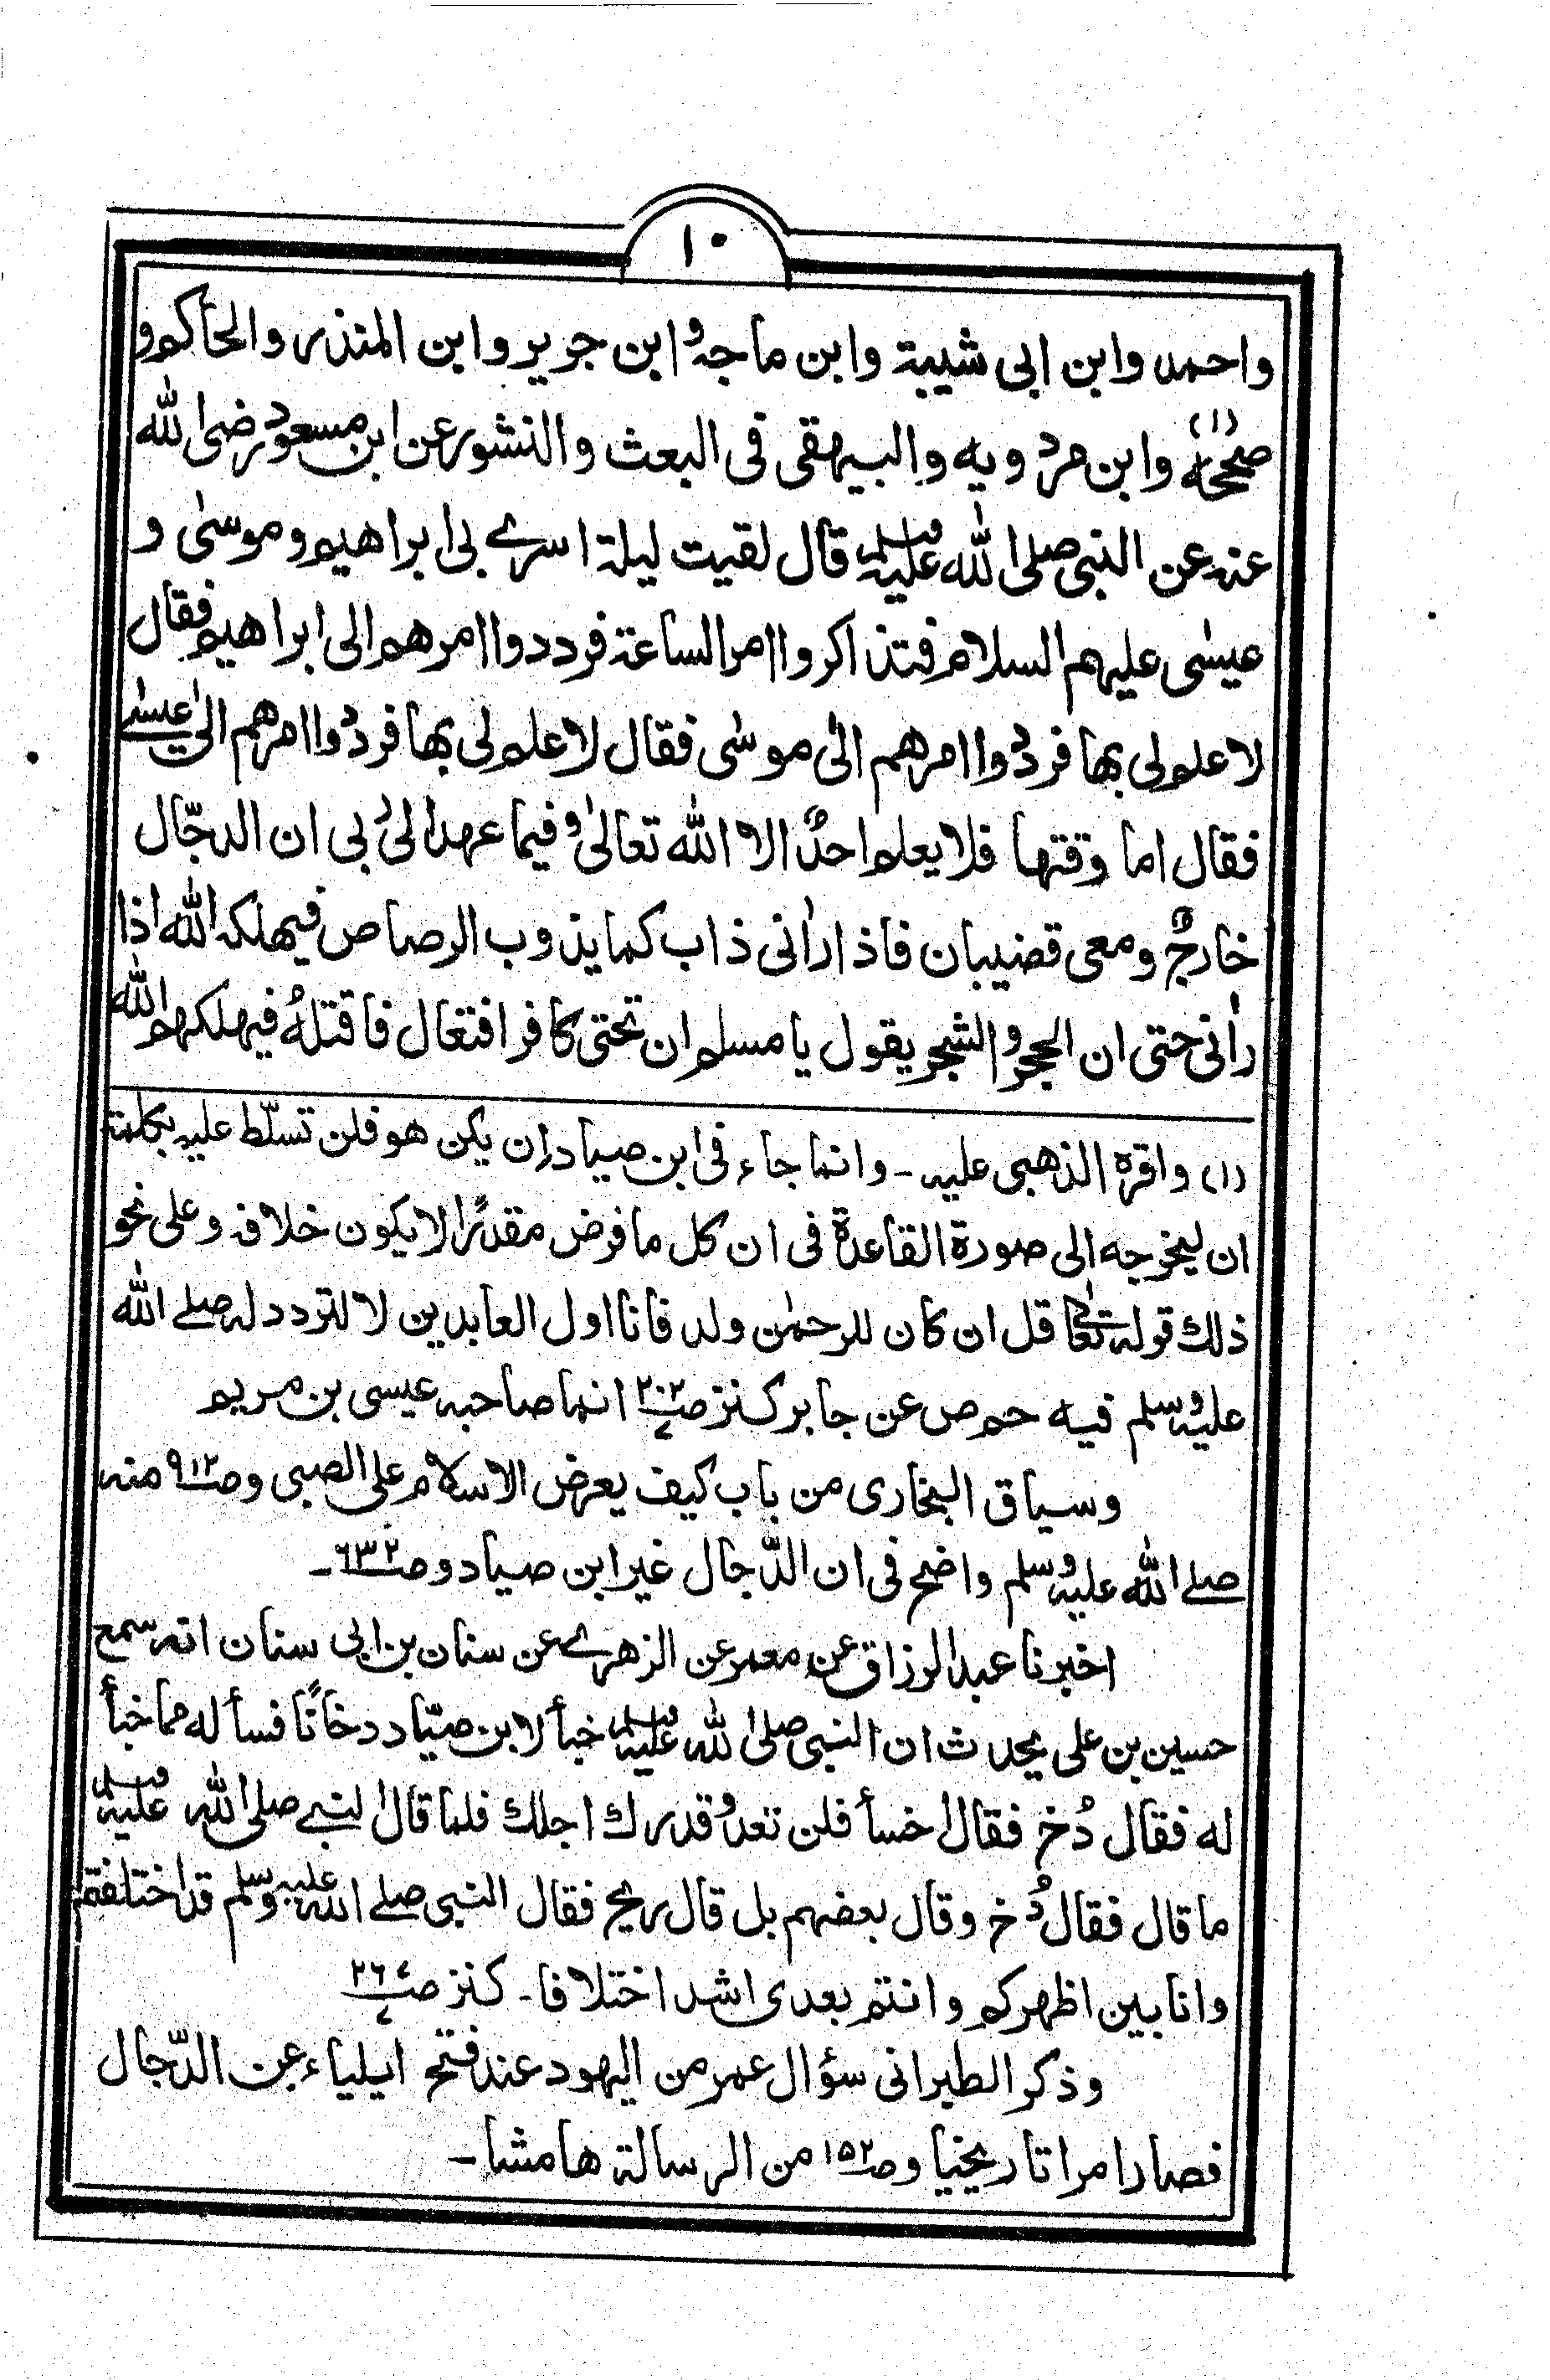 ١٠
واحمد وابن ابی شیبة وابن ماجہ وابن جریر وابن المنذر والحاکم و
صححہ (١) وابن مردویه والبیهقی فی البعث والنشور عن ابن مسعود رضی الله
عنہ عن النبی صلی الله علیہ وسلم قال لقیت لیلة اسرے بی ابراهیم وموسٰی و
عیسٰی علیهم السلام فتذاکروا امر الساعة فرددوا امرهم الی ابراهیم فقال
لا علم لی بها فردُّوا امرهم الٰی موسٰی فقال لا علم لی بها فردُّوا امرهم الٰی عیسٰے
فقال اما وقتها فلا یعلم احدٌ الا الله تعالٰی وفیما عهد الیَّ ربی ان الدجّال
خارجٌ ومعی قضیبان فاذا راٰنی ذاب کما یذوب الرصاص فیهلکہ الله اذا
راٰنی حتی ان الحجر والشجر یقول یا مسلم ان تحتی کافرا فتعال فاقتلهُ فیهلکهم الله
(١) واقره الذهبی علیہ ۔ وانما جاء فی ابن صیاد إن یکن هو فلن تسلّط علیہ بکلمة
ان لیخرجه الی صورة القاعدة فی ان کل ما فرض مقدرًا لا یکون خلافہ وعلی نحو
ذلك قولہ تعالٰی قل ان کان للرحمٰن ولد فانا اول العابدین لا لتردد لہ صلے الله
علیہ وسلم فیه حم ص عن جابر کنز صـ٢٠٢ـ انما صاحبہ عیسی بن مریم
وسیاق البخاری من باب کیف یعرض الاسلام علی الصبی وصـ٩١٢ منہ
صلے الله علیہ وسلم واضح فی ان الدّجال غیر ابن صیاد وصـ٦٣٢ـ۔
اخبرنا عبد الرزاق عن معمر عن الزهرے عن سنان بن ابی سنان انہ سمع
حسین بن علی یحدث ان النبی صلی الله علیہ وسلم خبأ لابن صیّاد دخانًا فسأله عما خبأ
له فقال دُخ فقال اخسأ فلن تعدو قدرك اجلك فلما قال النبے صلی الله علیہ وسلم
ما قال فقال دُخ وقال بعضهم بل قال ریح فقال النبی صلے الله علیہ وسلم قد اختلفتم
وانا بین اظهرکم وانتم بعدی اشد اختلافا ۔ کنز صـ٢٦٧
وذکر الطبرانی سؤال عمر من الیهود عند فتح ایلیاء عن الدّجال
فصار امرا تاریخیا وصـ١٥٢ من الرسالة هامشا ۔